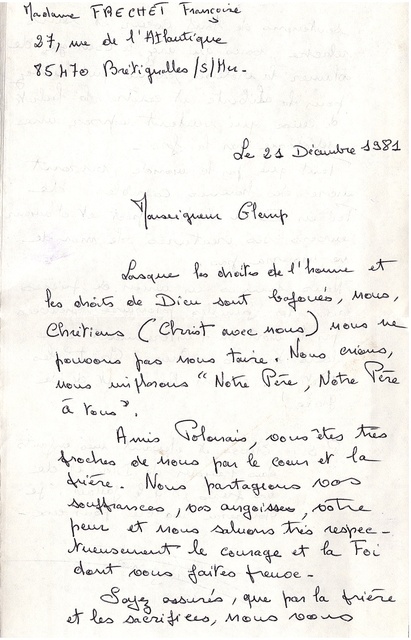 Madame FRECHET Françoise
27, rue de l'Atlantique
85470 Brétignolles/S/Mer.
Le 21 Décembre 1981
Monseigneur Glemp
Lorsque les droits de l'homme et
les droits de Dieu sont bafoués, nous,
Chrétiens (Christ avec nous) nous ne
pouvons pas nous taire. Nous crions,
nous implorons "Notre Père, Notre Père
à tous".
Amis Polonais, vous êtes très
proches de nous par le coeur et la
prière. Nous partageons vos
souffrances, vos angoisses, votre
peur et nous saluons très respec-
tueusement le courage et la Foi
dont vous faites preuve.
Soyez assurés, que par la prière
et les sacrifices, nous vous